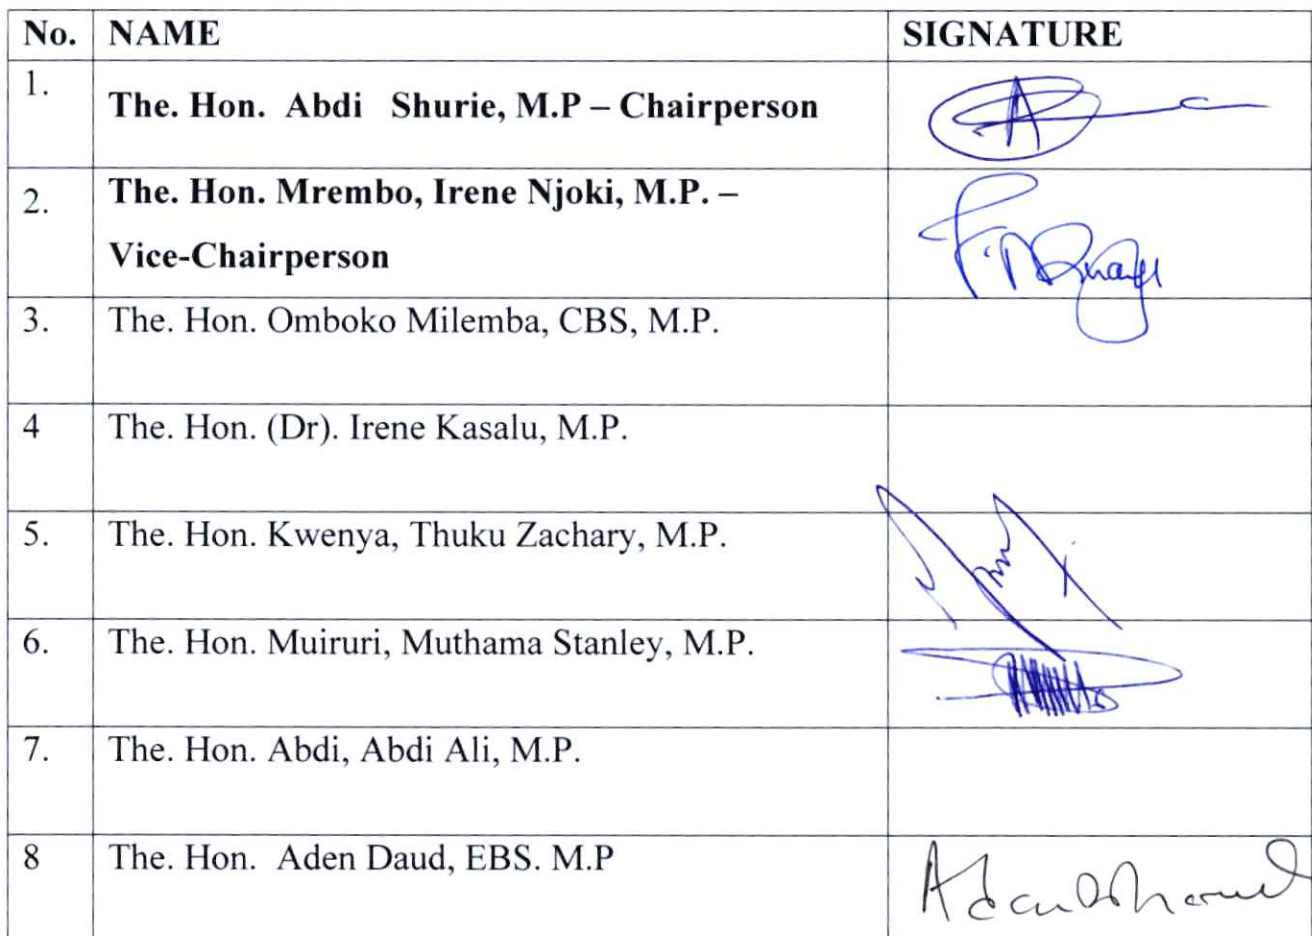 No. NAME SIGNATURE
1. The. Hon. Abdi Shurie, M.P – Chairperson
2. The. Hon. Mrembo, Irene Njoki, M.P. –
Vice-Chairperson
3. The. Hon. Omboko Milemba, CBS, M.P.
4 The. Hon. (Dr). Irene Kasalu, M.P.
5. The. Hon. Kwenya, Thuku Zachary, M.P.
6. The. Hon. Muiruri, Muthama Stanley, M.P.
7. The. Hon. Abdi, Abdi Ali, M.P.
8 The. Hon. Aden Daud, EBS. M.P